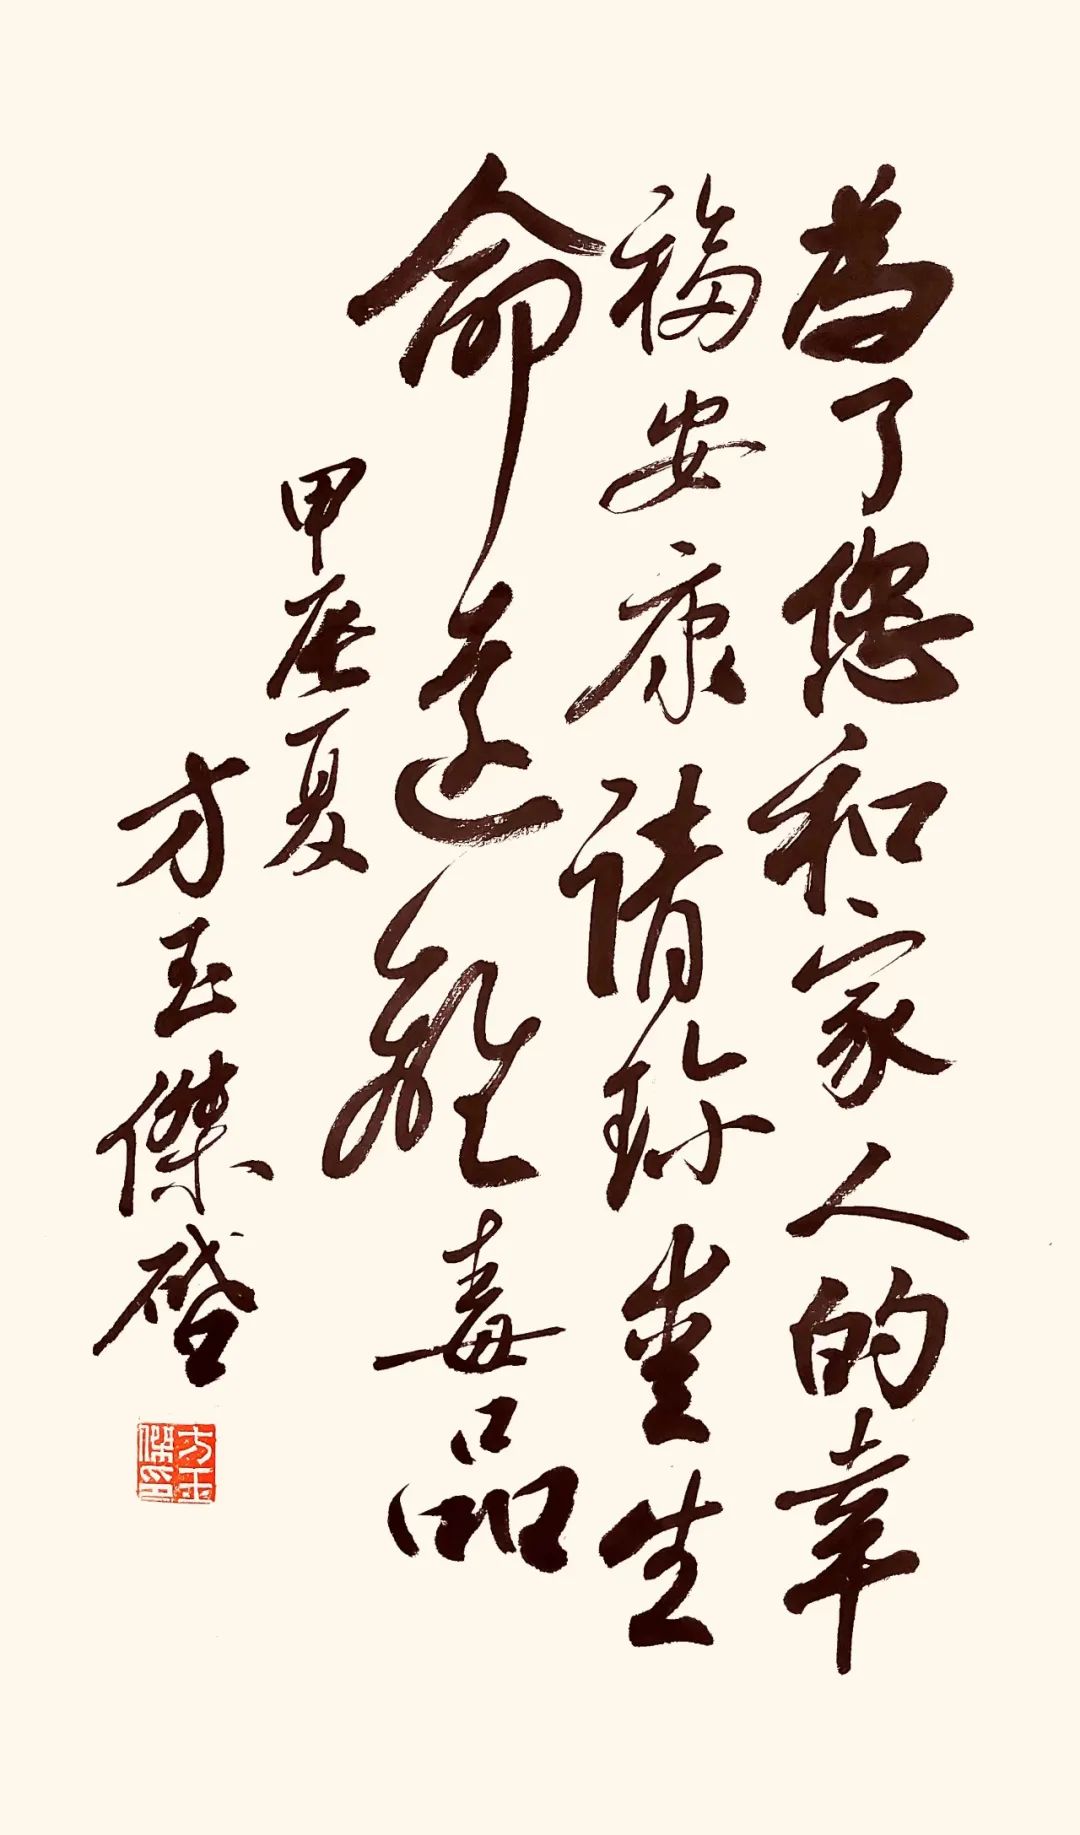 為了您和家人的幸
福安康請珍愛生
命遠離毒品
甲辰夏
方玉傑啓
方玉
傑印